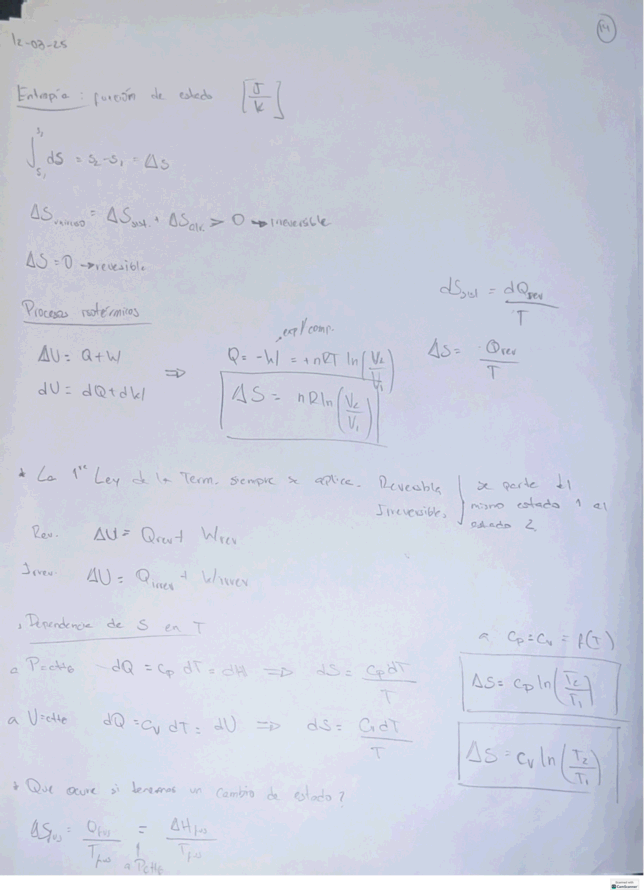 14
12-03-25
Entropía : función de estado [J/K]
∫_{S₁}^{S₂} dS = S₂ - S₁ = ΔS
ΔS_universo = ΔS_sist. + ΔS_alr. > 0 → irreversible
ΔS = 0 → reversible
dS_sist = dQ_rev / T
Procesos isotérmicos
exp/comp.
ΔU = Q + W ⇒ Q = -W = +nRT ln(V₂/V₁)
ΔS = Q_rev / T
dU = dQ + dW
ΔS = nR ln(V₂/V₁)
* La 1ᵉʳ Ley de la Term. siempre se aplica. Reversible, Irreversible, } se parte del mismo estado 1 al estado 2
Rev. ΔU = Q_rev + W_rev
Irrev. ΔU = Q_irrev + W_irrev
Dependencia de S en T
a Cp = Cv = f(T)
a P=ctte dQ = Cp dT = dH ⇒ dS = Cp dT / T
ΔS = Cp ln(T₂/T₁)
a V=ctte dQ = Cv dT = dU ⇒ dS = Cv dT / T
ΔS = Cv ln(T₂/T₁)
* Que ocurre si tenemos un cambio de estado?
ΔS_fus = Q_fus / T_fus = ΔH_fus / T_fus
a P ctte
CamScanner